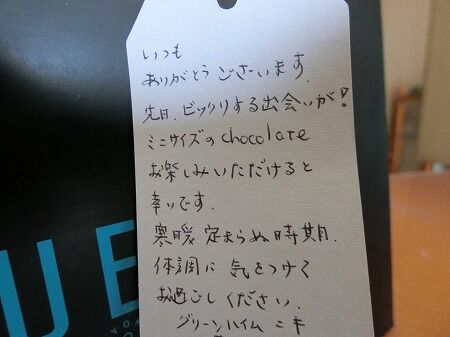 いつも
ありがとうございます.
先日.ビックリする出会いが!
ミニサイズのchocolate
お楽しみいただけると
幸いです.
寒暖定まらぬ時期.
体調に気をつけて
お過ごしください.
グリーンハイム ニキ
UE
YO